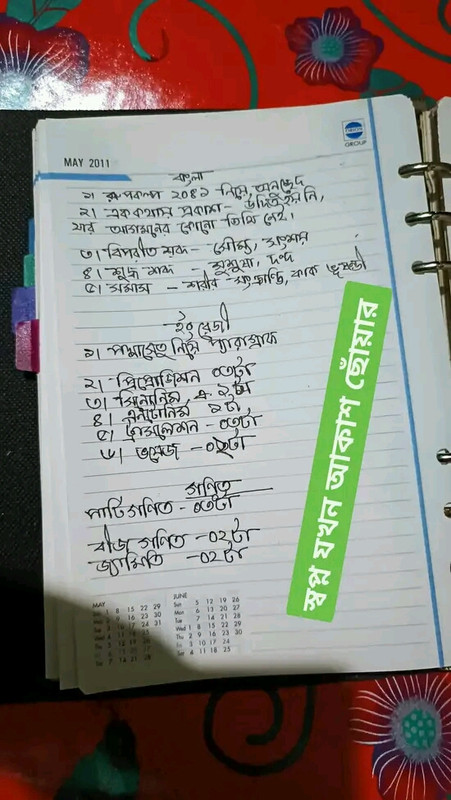 MAY 2011
GROUP
বাংলা
১। রুপকল্প ২০৪১ নিয়ে অনুচ্ছেদ
২। এক কথায় প্রকাশ -
যার আগমনের কোনো তিথি নেই।
৩। বিপরীত শব্দ - সৌম্য, সংশয়
৪। শুদ্ধ শব্দ - শুশ্রুষা, দ্বন্দ
৫। সমাস - শরীর সংক্রান্তি, কাক ভূষণ্ডী
ইংরেজী
১। পদ্মাসেতু নিয়ে প্যারাগ্রাফ
২। প্রিপোজিশন ০৩টা
৩। সিনোনিম ১টা
৪। এন্টোনিম ১টা,
৫। ট্রান্সলেশন - ০৩টা
৬। ভয়েজ - ০২টা
গণিত
পাটিগণিত - ০৩টা
বীজ গণিত - ০২টা
জ্যামিতি - ০২টা
স্বপ্ন যখন আকাশ ছোঁয়ার
MAY
1 8 15 22 29
9 16 23 30
JUNE
Sun 5 12 19 26
Mon 6 13 20 27
Tue 7 14 21 28
Wed 1 8 15 22 29
Thu 2 9 16 23 30
Fri 3 10 17 24
Sat 4 11 18 25